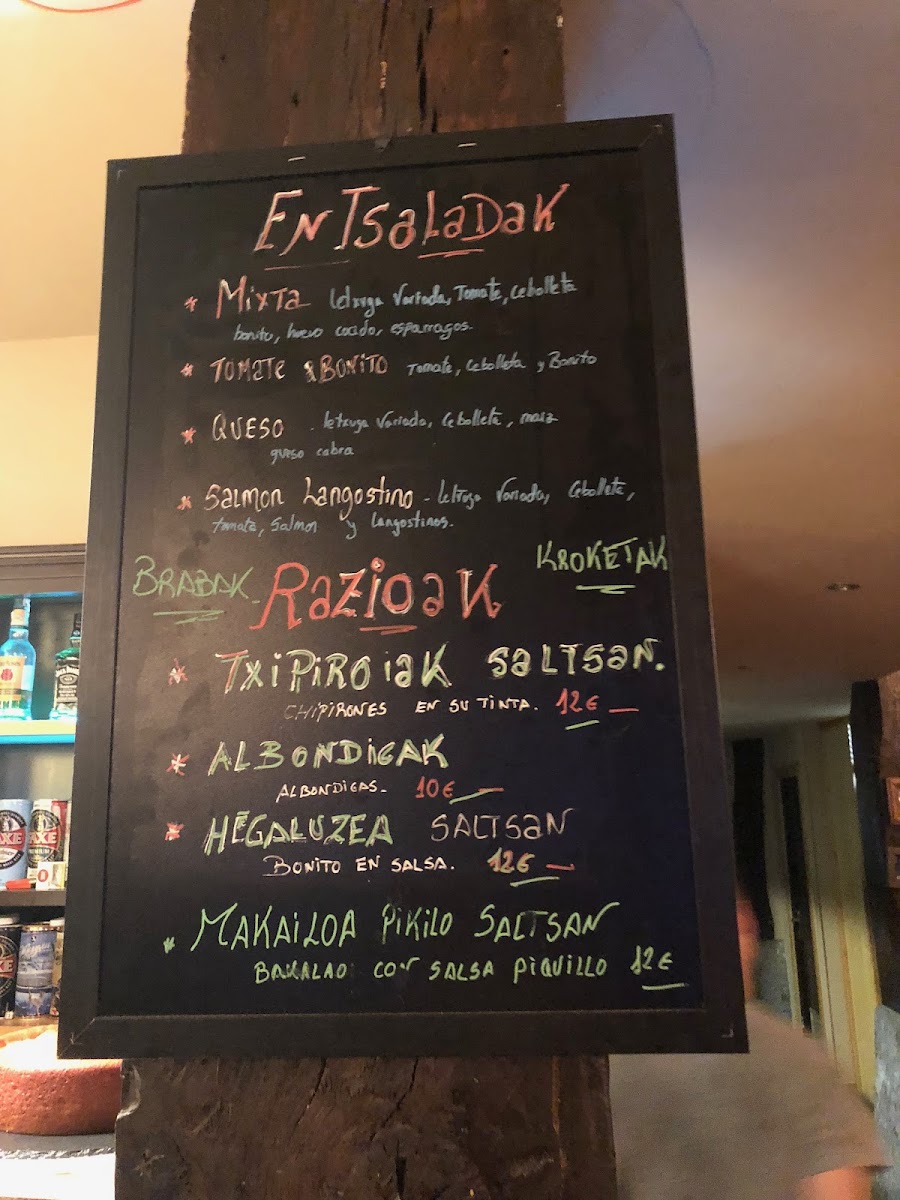 ENTSALADAK
* MIXTA letxuga Variada, Tomate, Cebolleta
bonito, huevo cocido, esparragos.
* TOMATE & BONITO Tomate, Cebolleta y Bonito
* QUESO letxuga Variada, Cebolleta, maiz
queso cabra
* Salmon Langostino - Letxuga Variada, Cebolleta,
tomate, Salmon y Langostinos.
BRABAK RAZIOAK KROKETAK
* TXIPIROIAK SALTSAN.
CHIPIRONES EN SU TINTA. 12€
* ALBONDIGAK
ALBONDIGAS- 10€
* HEGALUZEA SALTSAN
BONITO EN SALSA. 12€
* MAKAILOA PIKILO SALTSAN
BAKALAO CON SALSA PIQUILLO 12€
AXE